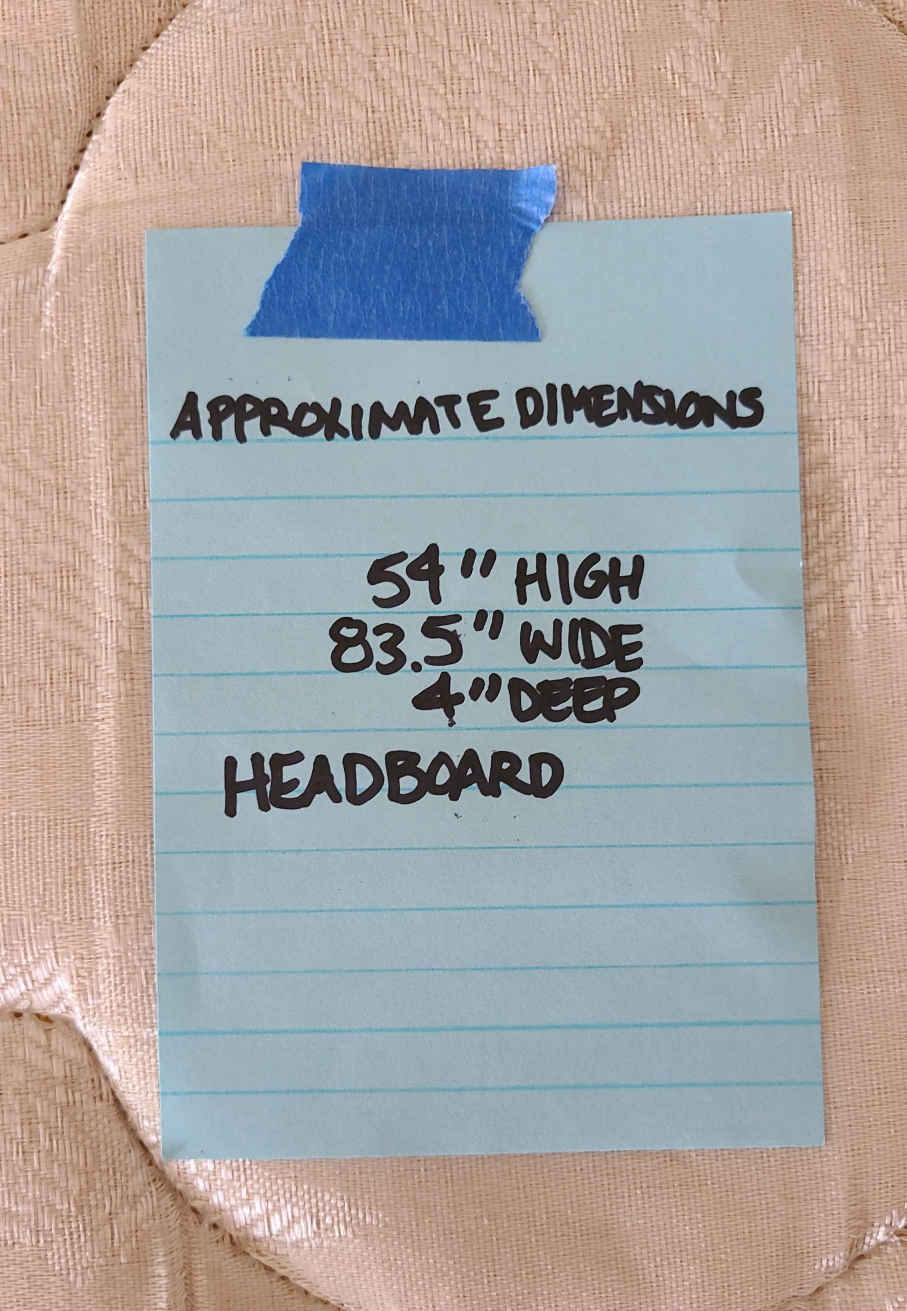 APPROXIMATE DIMENSIONS
54" HIGH
83.5" WIDE
4" DEEP
HEADBOARD